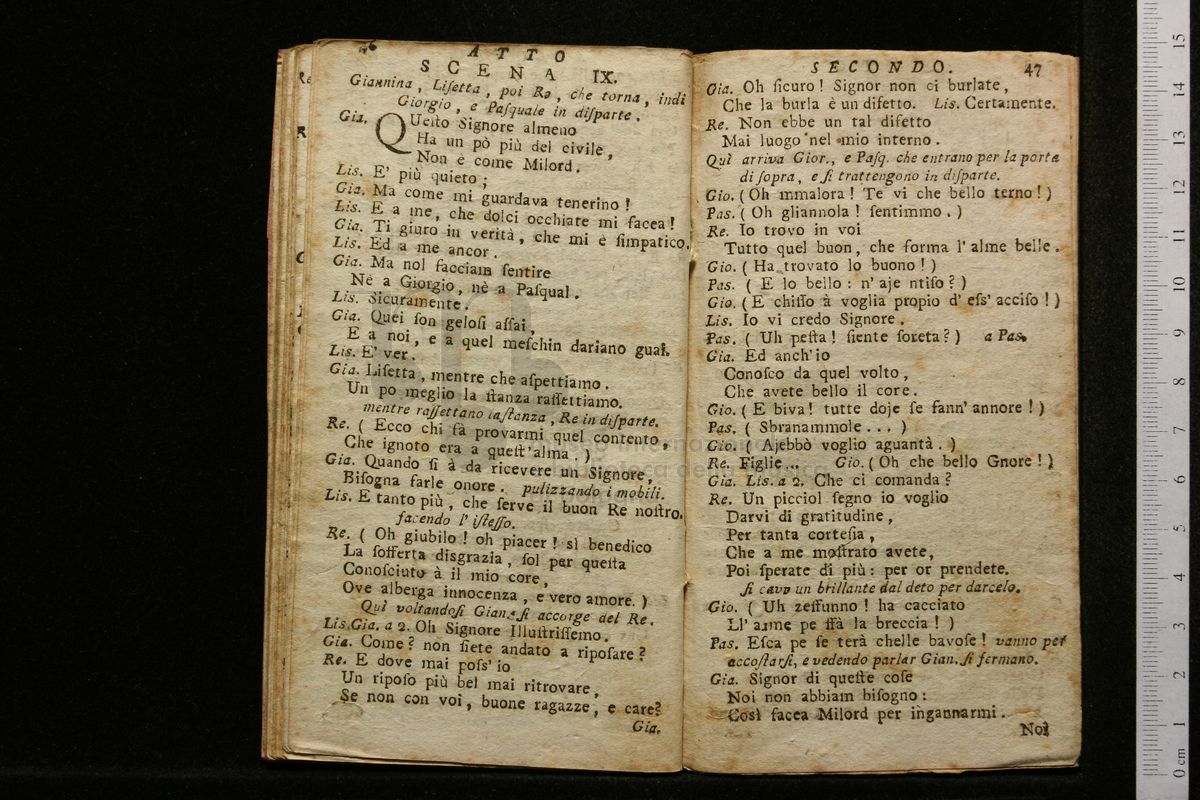 46
ATTO
SCENA IX.
Giannina, Liſetta, poi Re, che torna, indi
Giorgio, e Paſquale in diſparte.
Gia. QUeſto Signore almeno
Ha un pò più del civile,
Non è come Milord.
Lis. E' più quieto;
Gia. Ma come mi guardava tenerino!
Lis. E a me, che dolci occhiate mi facea!
Gia. Ti giuro in verità, che mi è ſimpatico.
Lis. Ed a me ancor.
Gia. Ma nol facciam ſentire
Nè a Giorgio, nè a Paſqual.
Lis. Sicuramente.
Gia. Quei ſon geloſi aſſai,
E a noi, e a quel meſchin dariano guai.
Lis. E' ver.
Gia. Liſetta, mentre che aſpettiamo.
Un po meglio la ſtanza raſſettiamo.
mentre raſſettano la ſtanza, Re in diſparte.
Re. ( Ecco chi fà provarmi quel contento,
Che ignoto era a queſt'alma.)
Gia. Quando ſi à da ricevere un Signore,
Biſogna farle onore. pulizzando i mobili.
Lis. E tanto più, che ſerve il buon Re noſtro.
facendo l'iſteſſo.
Re. ( Oh giubilo! oh piacer! sì benedico
La ſofferta disgrazia, ſol per queſta
Conoſciuto à il mio core,
Ove alberga innocenza, e vero amore.)
Quì voltandoſi Gian. ſi accorge del Re.
Lis. Gia. a 2. Oh Signore Illuſtriſſemo.
Gia. Come? non ſiete andato a ripoſare?
Re. E dove mai poſs'io
Un ripoſo più bel mai ritrovare,
Se non con voi, buone ragazze, e care?
Gia.
SECONDO. 47
Gia. Oh ſicuro! Signor non ci burlate,
Che la burla è un difetto. Lis. Certamente.
Re. Non ebbe un tal difetto
Mai luogo nel mio interno.
Quì arriva Gior., e Paſq. che entrano per la porta
di ſopra, e ſi trattengono in diſparte.
Gio. ( Oh mmalora! Te vi che bello terno!)
Pas. ( Oh gliannola! ſentimmo.)
Re. Io trovo in voi
Tutto quel buon, che forma l'alme belle.
Gio. ( Ha trovato lo buono!)
Pas. ( E lo bello: n'aje ntiſo?)
Gio. ( E chiſſo à voglia propio d'eſſ' acciſo!)
Lis. Io vi credo Signore.
Pas. ( Uh peſta! ſiente ſoreta?) a Pas.
Gia. Ed anch'io
Conoſco da quel volto,
Che avete bello il core.
Gio. ( E biva! tutte doje ſe fann' annore!)
Pas. ( Sbranammole...)
Gio. ( Ajebbò voglio aguantà.)
Re. Figlie... Gio. ( Oh che bello Gnore!)
Gia. Lis. a 2. Che ci comanda?
Re. Un picciol ſegno io voglio
Darvi di gratitudine,
Per tanta corteſia,
Che a me moſtrato avete,
Poi ſperate di più: per or prendete.
ſi cava un brillante dal deto per darcelo.
Gio. ( Uh zeffunno! ha cacciato
Ll'arme pe ffà la breccia!)
Pas. Eſca pe ſe terà chelle bavoſe! vanno per
accoſtarſi, e vedendo parlar Gian. ſi fermano.
Gia. Signor di queſte coſe
Noi non abbiam biſogno:
Così facea Milord per ingannarmi.
Noi